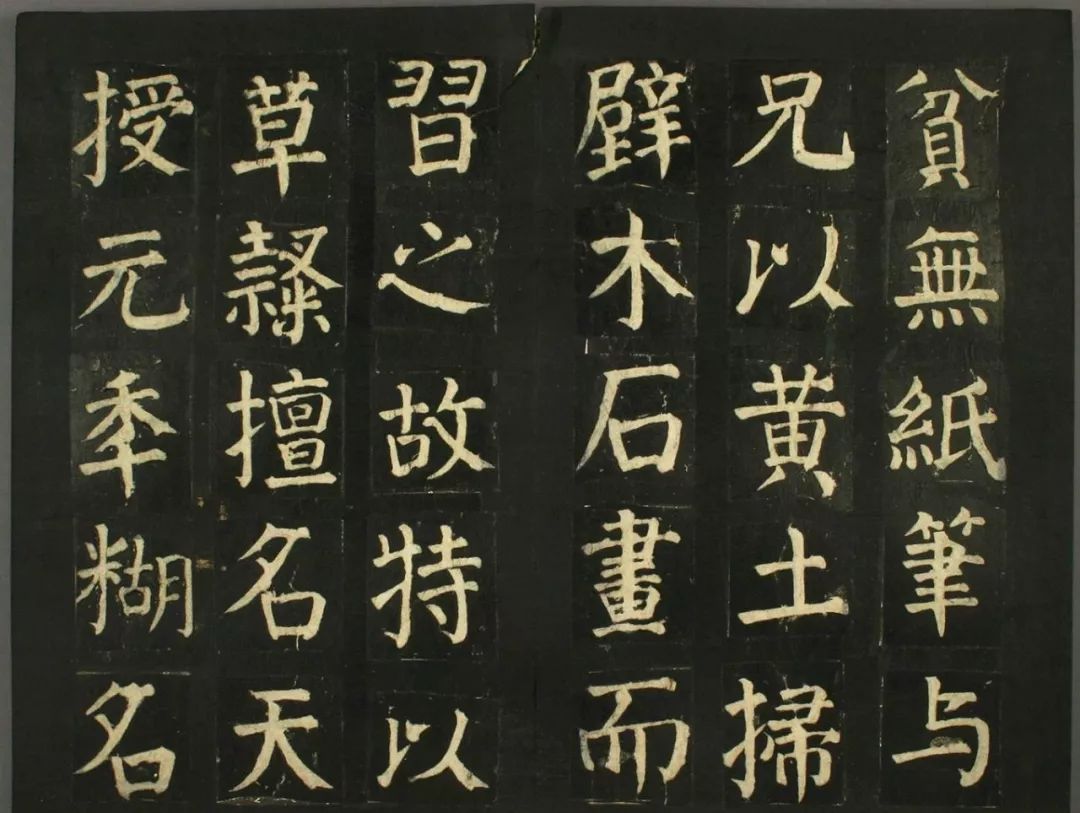 貧無紙筆与
兄以黄土掃
壁木石畫而
習之故特以
草隸擅名天
授元秊糊名